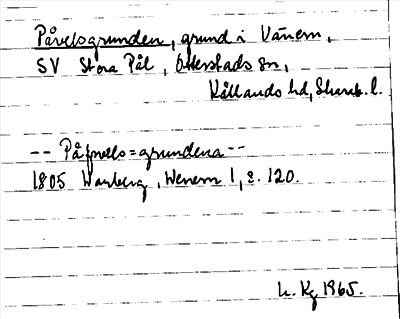 Påvelsgrunden, grund i Vänern,
SV Stora Pål, Otterstads sn,
Kållands hd, Skarab. l.
-- Påfvels=grundena --
1805 Warberg, Wenern 1, s. 120.
L. Kg 1965.